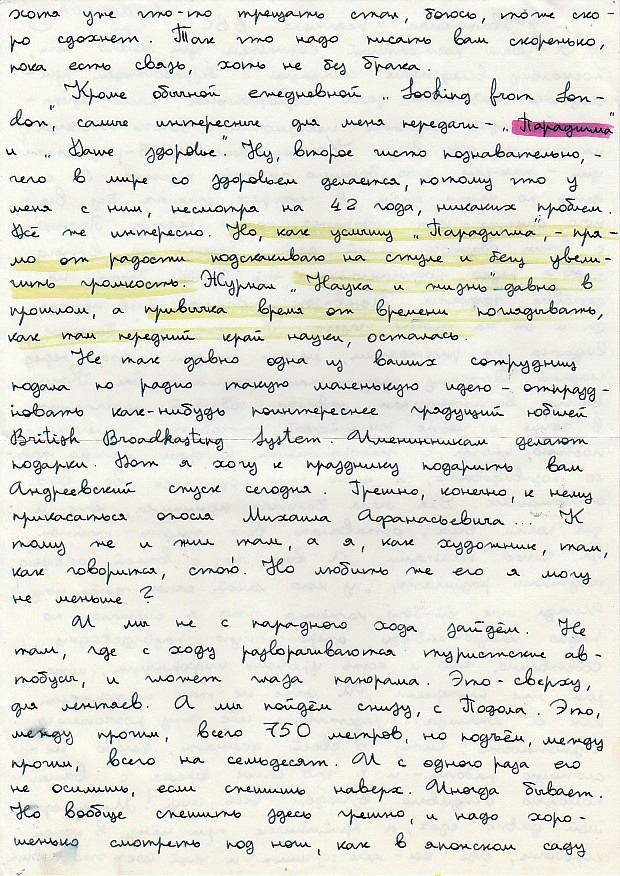 хотя уже что-то трещать стал, боюсь, тоже ско-
ро сдохнет. Так что надо писать вам скоренько,
пока есть связь, хоть не без брака.
Кроме обычной ежедневной „Looking from Lon-
don", самые интересные для меня передачи - „Парадигма"
и „Ваше здоровье". Ну, второе чисто познавательно, -
чего в мире со здоровьем делается, потому что у
меня с ним, несмотря на 42 года, никаких проблем.
Всё же интересно. Но, как услышу „Парадигма", - пря-
мо от радости подскакиваю на стуле и бегу увели-
чить громкость. Журнал „Наука и жизнь" давно в
прошлом, а привычка время от времени поглядывать,
как там передний край науки, осталась.
Не так давно одна из ваших сотрудниц
подала по радио такую маленькую идею - отпразд-
новать как-нибудь поинтереснее грядущий юбилей
British Broadkasting System. Именинникам делают
подарки. Вот я хочу к празднику подарить вам
Андреевский спуск сегодня. Грешно, конечно, к нему
прикасаться опосля Михаила Афанасьевича... К
тому же и жил там, а я, как художник, там,
как говорится, стою. Но любить же его я могу
не меньше?
И мы не с парадного хода зайдём. Не
там, где с ходу разворачиваются туристские ав-
тобусы, и глотает глаза панорама. Это - сверху,
для лентяев. А мы пойдём снизу, с Подола. Это,
между прочим, всего 750 метров, но подъём, между
прочим, всего на семьдесят. И с одного раза его
не осилить, если спешишь наверх. Иногда бывает.
Но вообще спешить здесь грешно, и надо хоро-
шенько смотреть под ноги, как в японском саду